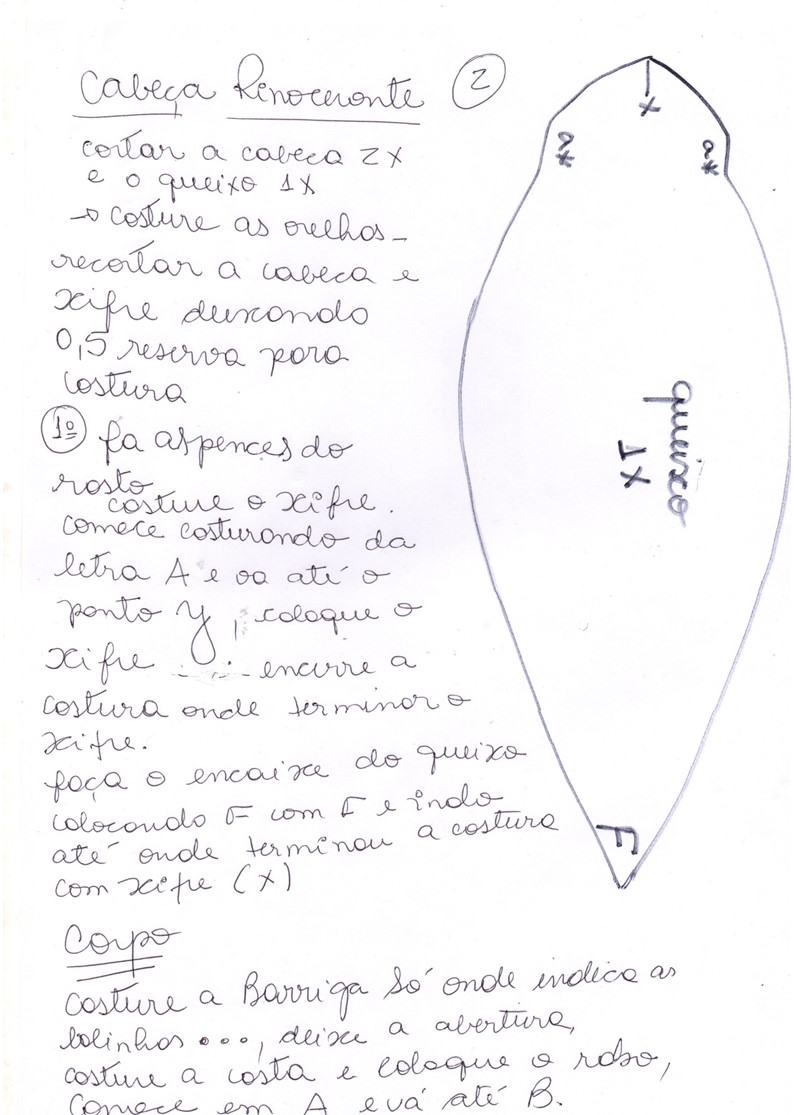 Cabeça Rinoceronte
2
cortar a cabeca 2x
e o queixo 1x
→ costure as orelhas-
recortar a cabeca e
xifre deixando
0,5 reserva para
costura
1º fa as pences do
rosto
costure o xifre.
comece costurando da
letra A e va até o
ponto Y, coloque o
xifre encurre a
costura onde terminar o
xifre.
faça o encaixe do queixo
colocando F com F e indo
até onde terminou a costura
com xifre (X)
Corpo
costure a Barriga só onde indica as
bolinhas •••, deixe a abertura,
costure a costa e coloque o rabo,
comece em A e vá até B.
X
a*
a*
queixo
1X
F